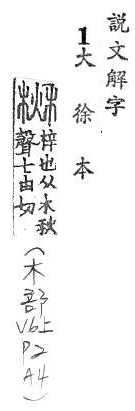 說文解字
1大徐本
楸 梓也从木秋
聲七由切
(木部
V6上
P2
A4)